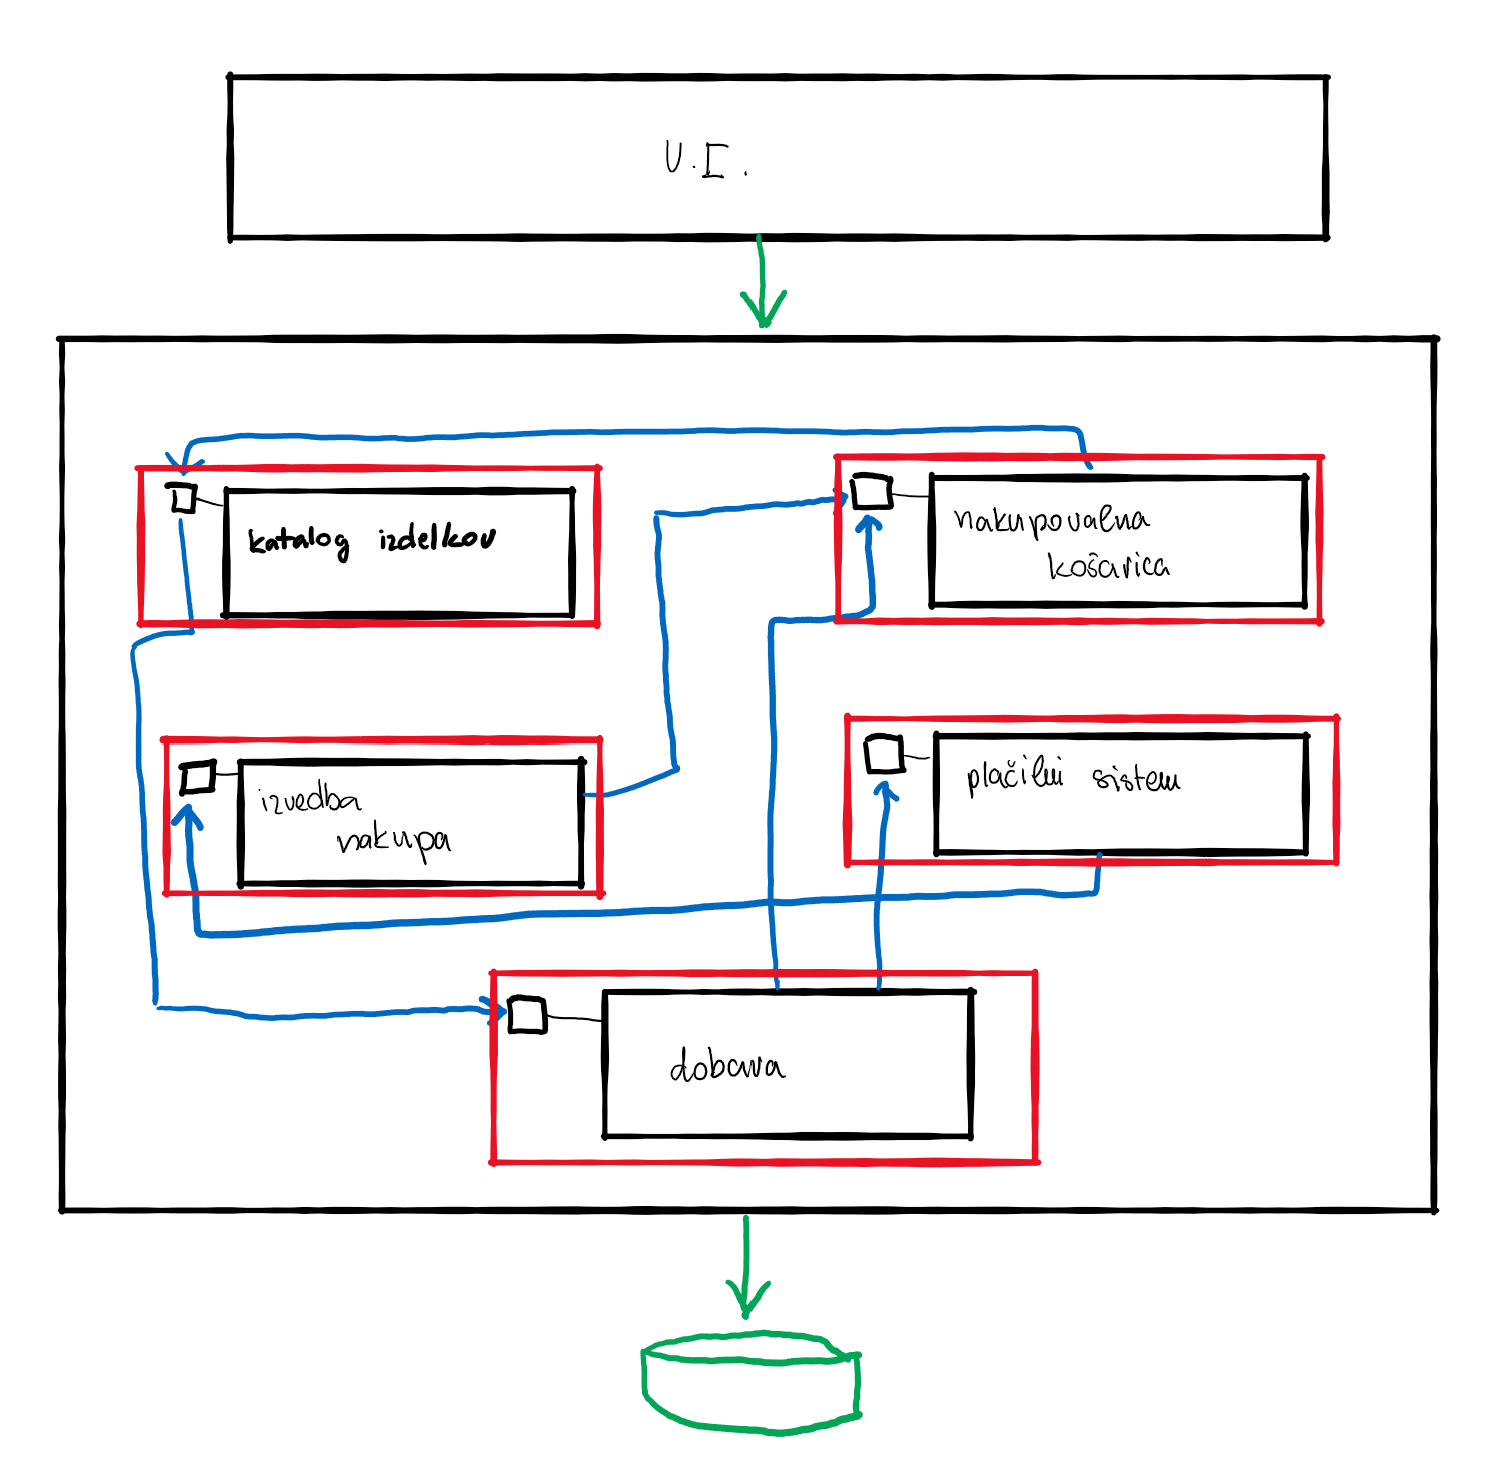 U.I.
katalog izdelkov
nakupovalna
košarica
izvedba
nakupa
plačilni sistem
dobava